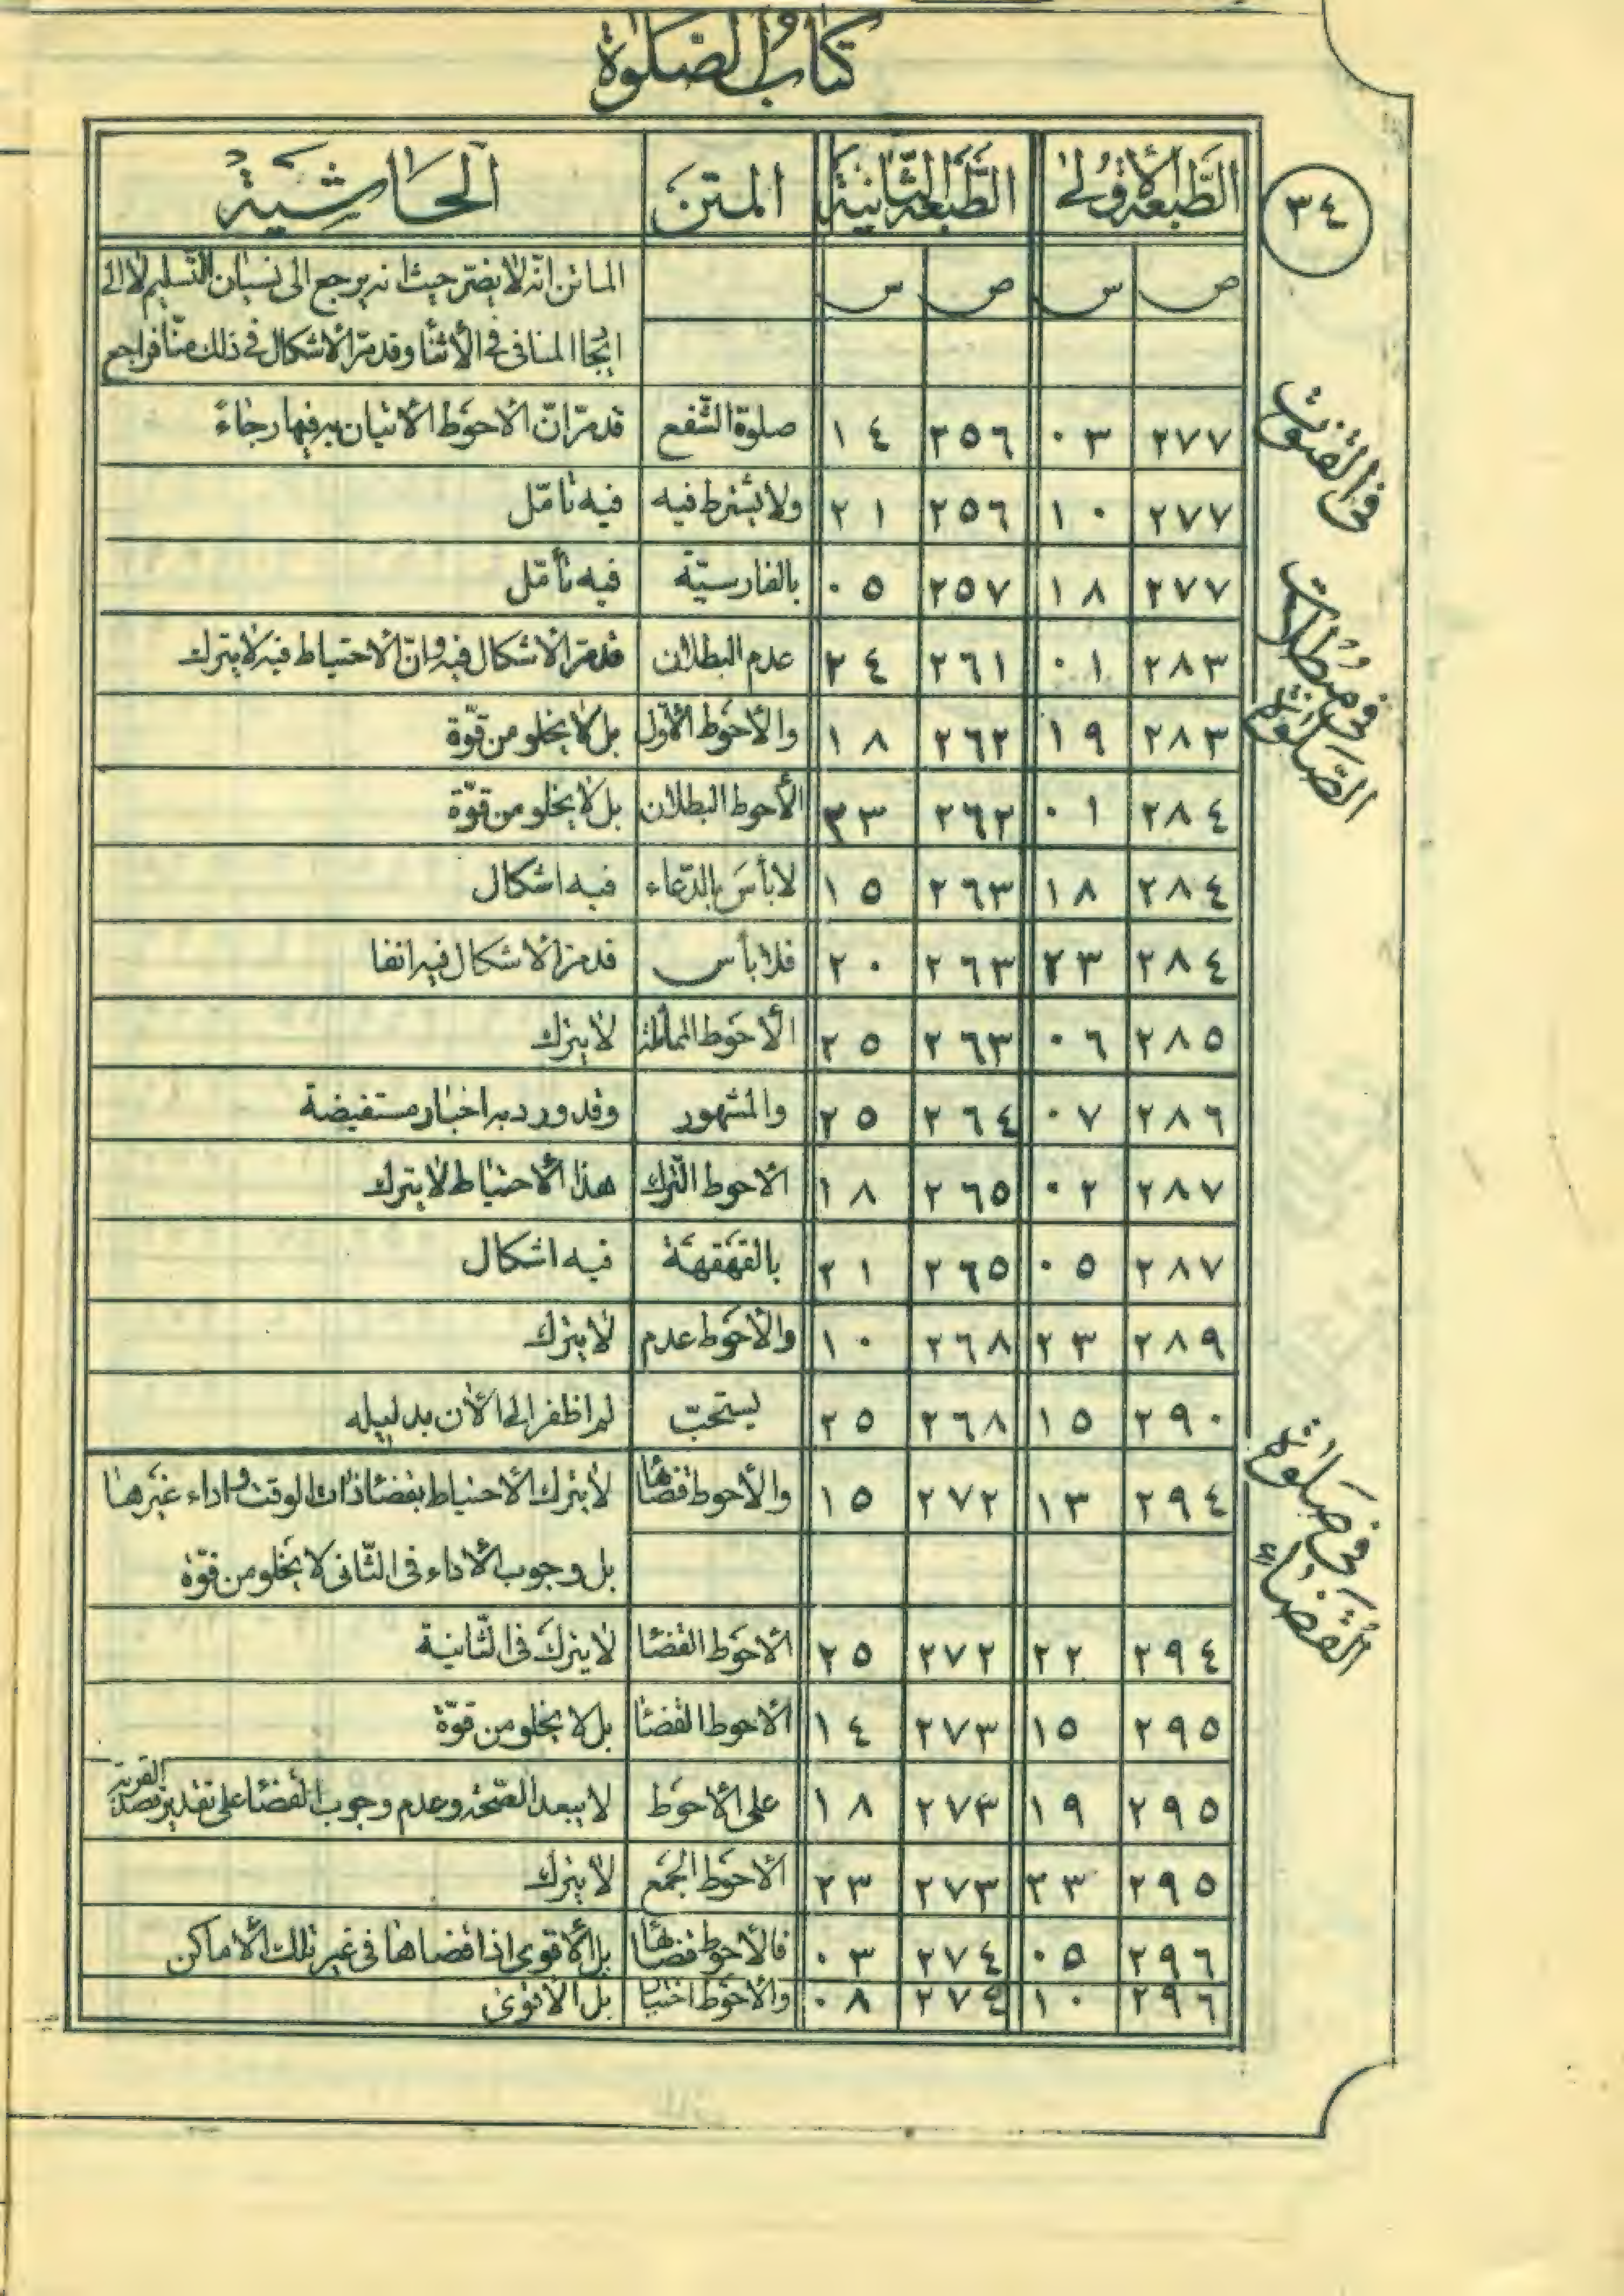 كتاب الصلوة
٣٤
الطبعة الأولى | الطبعة الثانية | المتن | الحاشية
ص | س | ص | س | | الماتن انه لا يضر حيث انه يرجع الى نسيان التسليم لا الى
ايجاد المنافى فى الأثناء وقد مرّ الاشكال فى ذلك منّا فراجع
فى القنوت
٢٧٧ | ٠٣ | ٢٥٦ | ١٤ | صلوة الشفع | قد مرّ انّ الاحوط الاتيان به فيها رجاءً
٢٧٧ | ١٠ | ٢٥٦ | ٢١ | ولا يشترط فيه | فيه تأمّل
٢٧٧ | ١٨ | ٢٥٧ | ٠٥ | بالفارسيّة | فيه تأمّل
فى مبطلات الصّلوة
٢٨٣ | ٠١ | ٢٦١ | ٢٤ | عدم البطلان | قد مرّ الاشكال فيه وانّ الاحتياط فيه لا يترك
٢٨٣ | ١٩ | ٢٦٢ | ١٨ | والأحوط الأوّل | بل لا يخلو من قوّة
٢٨٤ | ٠١ | ٢٦٢ | ٢٣ | الأحوط البطلان | بل لا يخلو من قوّة
٢٨٤ | ١٨ | ٢٦٣ | ١٥ | لا بأس بالدّعاء | فيه اشكال
٢٨٤ | ٢٣ | ٢٦٣ | ٢٠ | فلا بأس | قد مرّ الاشكال فيه انفا
٢٨٥ | ٠٦ | ٢٦٣ | ٢٥ | الأحوط المماثلة | لا يترك
٢٨٦ | ٠٧ | ٢٦٤ | ٢٥ | والمشهور | وقد ورد به اخبار مستفيضة
٢٨٧ | ٠٢ | ٢٦٥ | ١٨ | الاحوط الترك | هذا الأحتياط لا يترك
٢٨٧ | ٠٥ | ٢٦٥ | ٢١ | بالقهقهة | فيه اشكال
٢٨٩ | ٢٣ | ٢٦٨ | ١٠ | والأحوط عدم | لا يترك
٢٩٠ | ١٥ | ٢٦٨ | ٢٥ | يستحبّ | لم اظفر الى الأن بدليله
فى صلوة القضاء
٢٩٤ | ١٣ | ٢٧٢ | ١٥ | والأحوط قضاها | لا يترك الاحتياط بقضاء ذات الوقت واداء غيرها
بل وجوب الأداء فى الثّانى لا يخلو من قوّة
٢٩٤ | ٢٢ | ٢٧٢ | ٢٥ | الاحوط القضا | لا يترك فى الثّانية
٢٩٥ | ١٥ | ٢٧٣ | ١٤ | الأحوط القضا | بل لا يخلو من قوّة
٢٩٥ | ١٩ | ٢٧٣ | ١٨ | على الأحوط | لا يبعد الصّحة وعدم وجوب القضا على تقدير قصد القربة
٢٩٥ | ٢٣ | ٢٧٣ | ٢٣ | الاحوط الجمع | لا يترك
٢٩٦ | ٠٥ | ٢٧٤ | ٠٣ | فالأحوط قضائها | بل الأقوى اذا قضاها فى غير تلك الأماكن
٢٩٦ | ١٠ | ٢٧٤ | ٠٨ | والأحوط | بل الأقوى